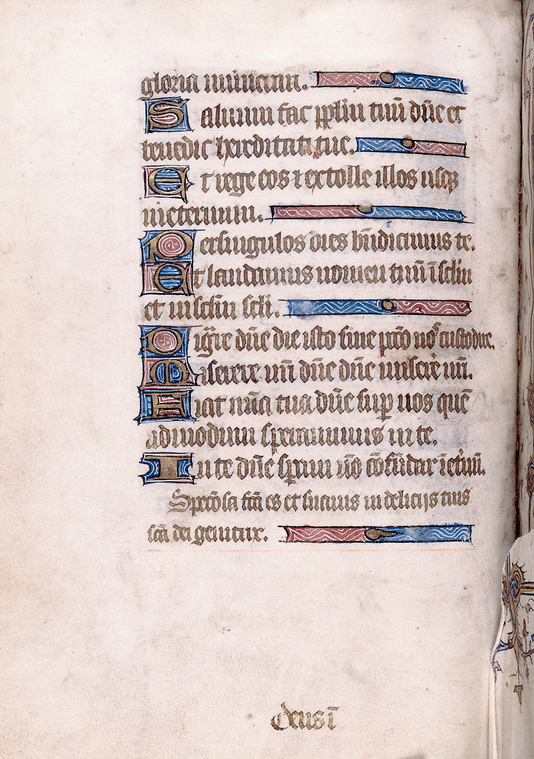 gloria numerari.
Saluum fac pplm tuū dn̄e et
benedic hereditati tue.
Et rege eos ⁊ extolle illos usq
in eternum.
Per singulos dies bn̄dicimus te.
Et laudamus nomen tuū ī sclm
et in sclm scli.
Dignr̄e dn̄e die isto sine pctō nos custodire.
Miserere nr̄i dn̄e dn̄e miserē nr̄i.
Fiat mīa tua dn̄e sup nos quē
admodum sperauimus in te.
In te dn̄e speraui nō cōfūdar ī etnū.
Speciosa fcā es et suauis in delicijs tuis
scā dei genitrix.
Deus ī